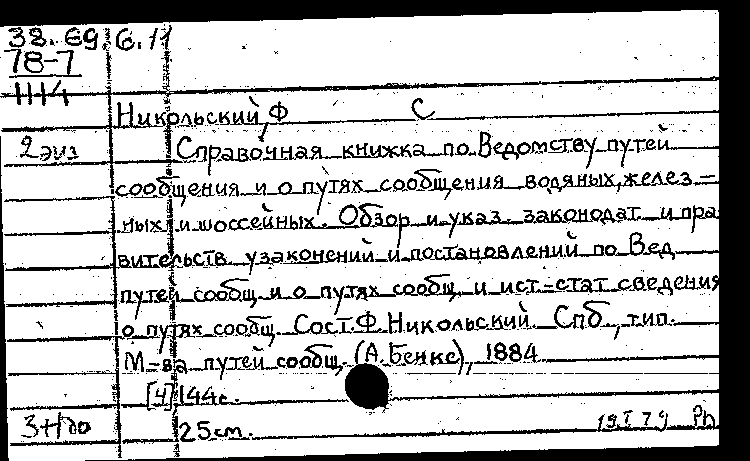 38.69.6.11
78-7
1114
Никольский, Ф С
2 экз Справочная книжка по Ведомству путей
сообщения и о путях сообщения водяных, желез-
ных и шоссейных. Обзор и указ. законодат и пра
вительств узаконений и постановлений по Вед
путей сообщ. и о путях сообщ. и ист-стат сведения
о путях сообщ. Сост. Ф. Никольский. Спб., тип.
М-ва путей сообщ. (А. Бенке), 1884
[4] 144с.
25 см.